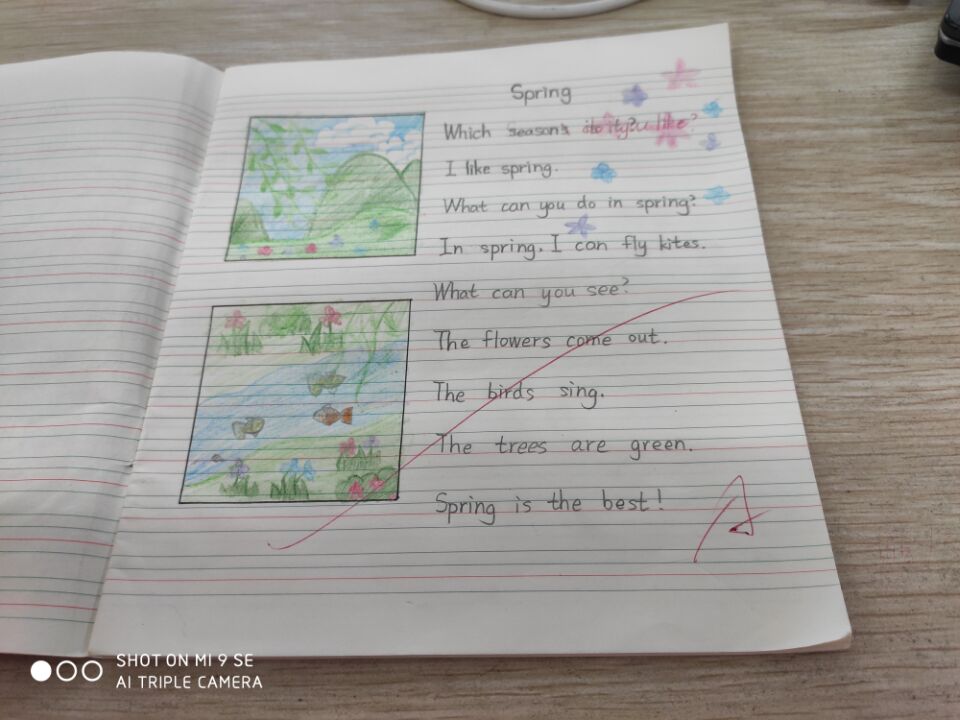 Spring
Which season do you like?
I like spring.
What can you do in spring?
In spring. I can fly kites.
What can you see?
The flowers come out.
The birds sing.
The trees are green.
Spring is the best!
A
SHOT ON MI 9 SE
AI TRIPLE CAMERA